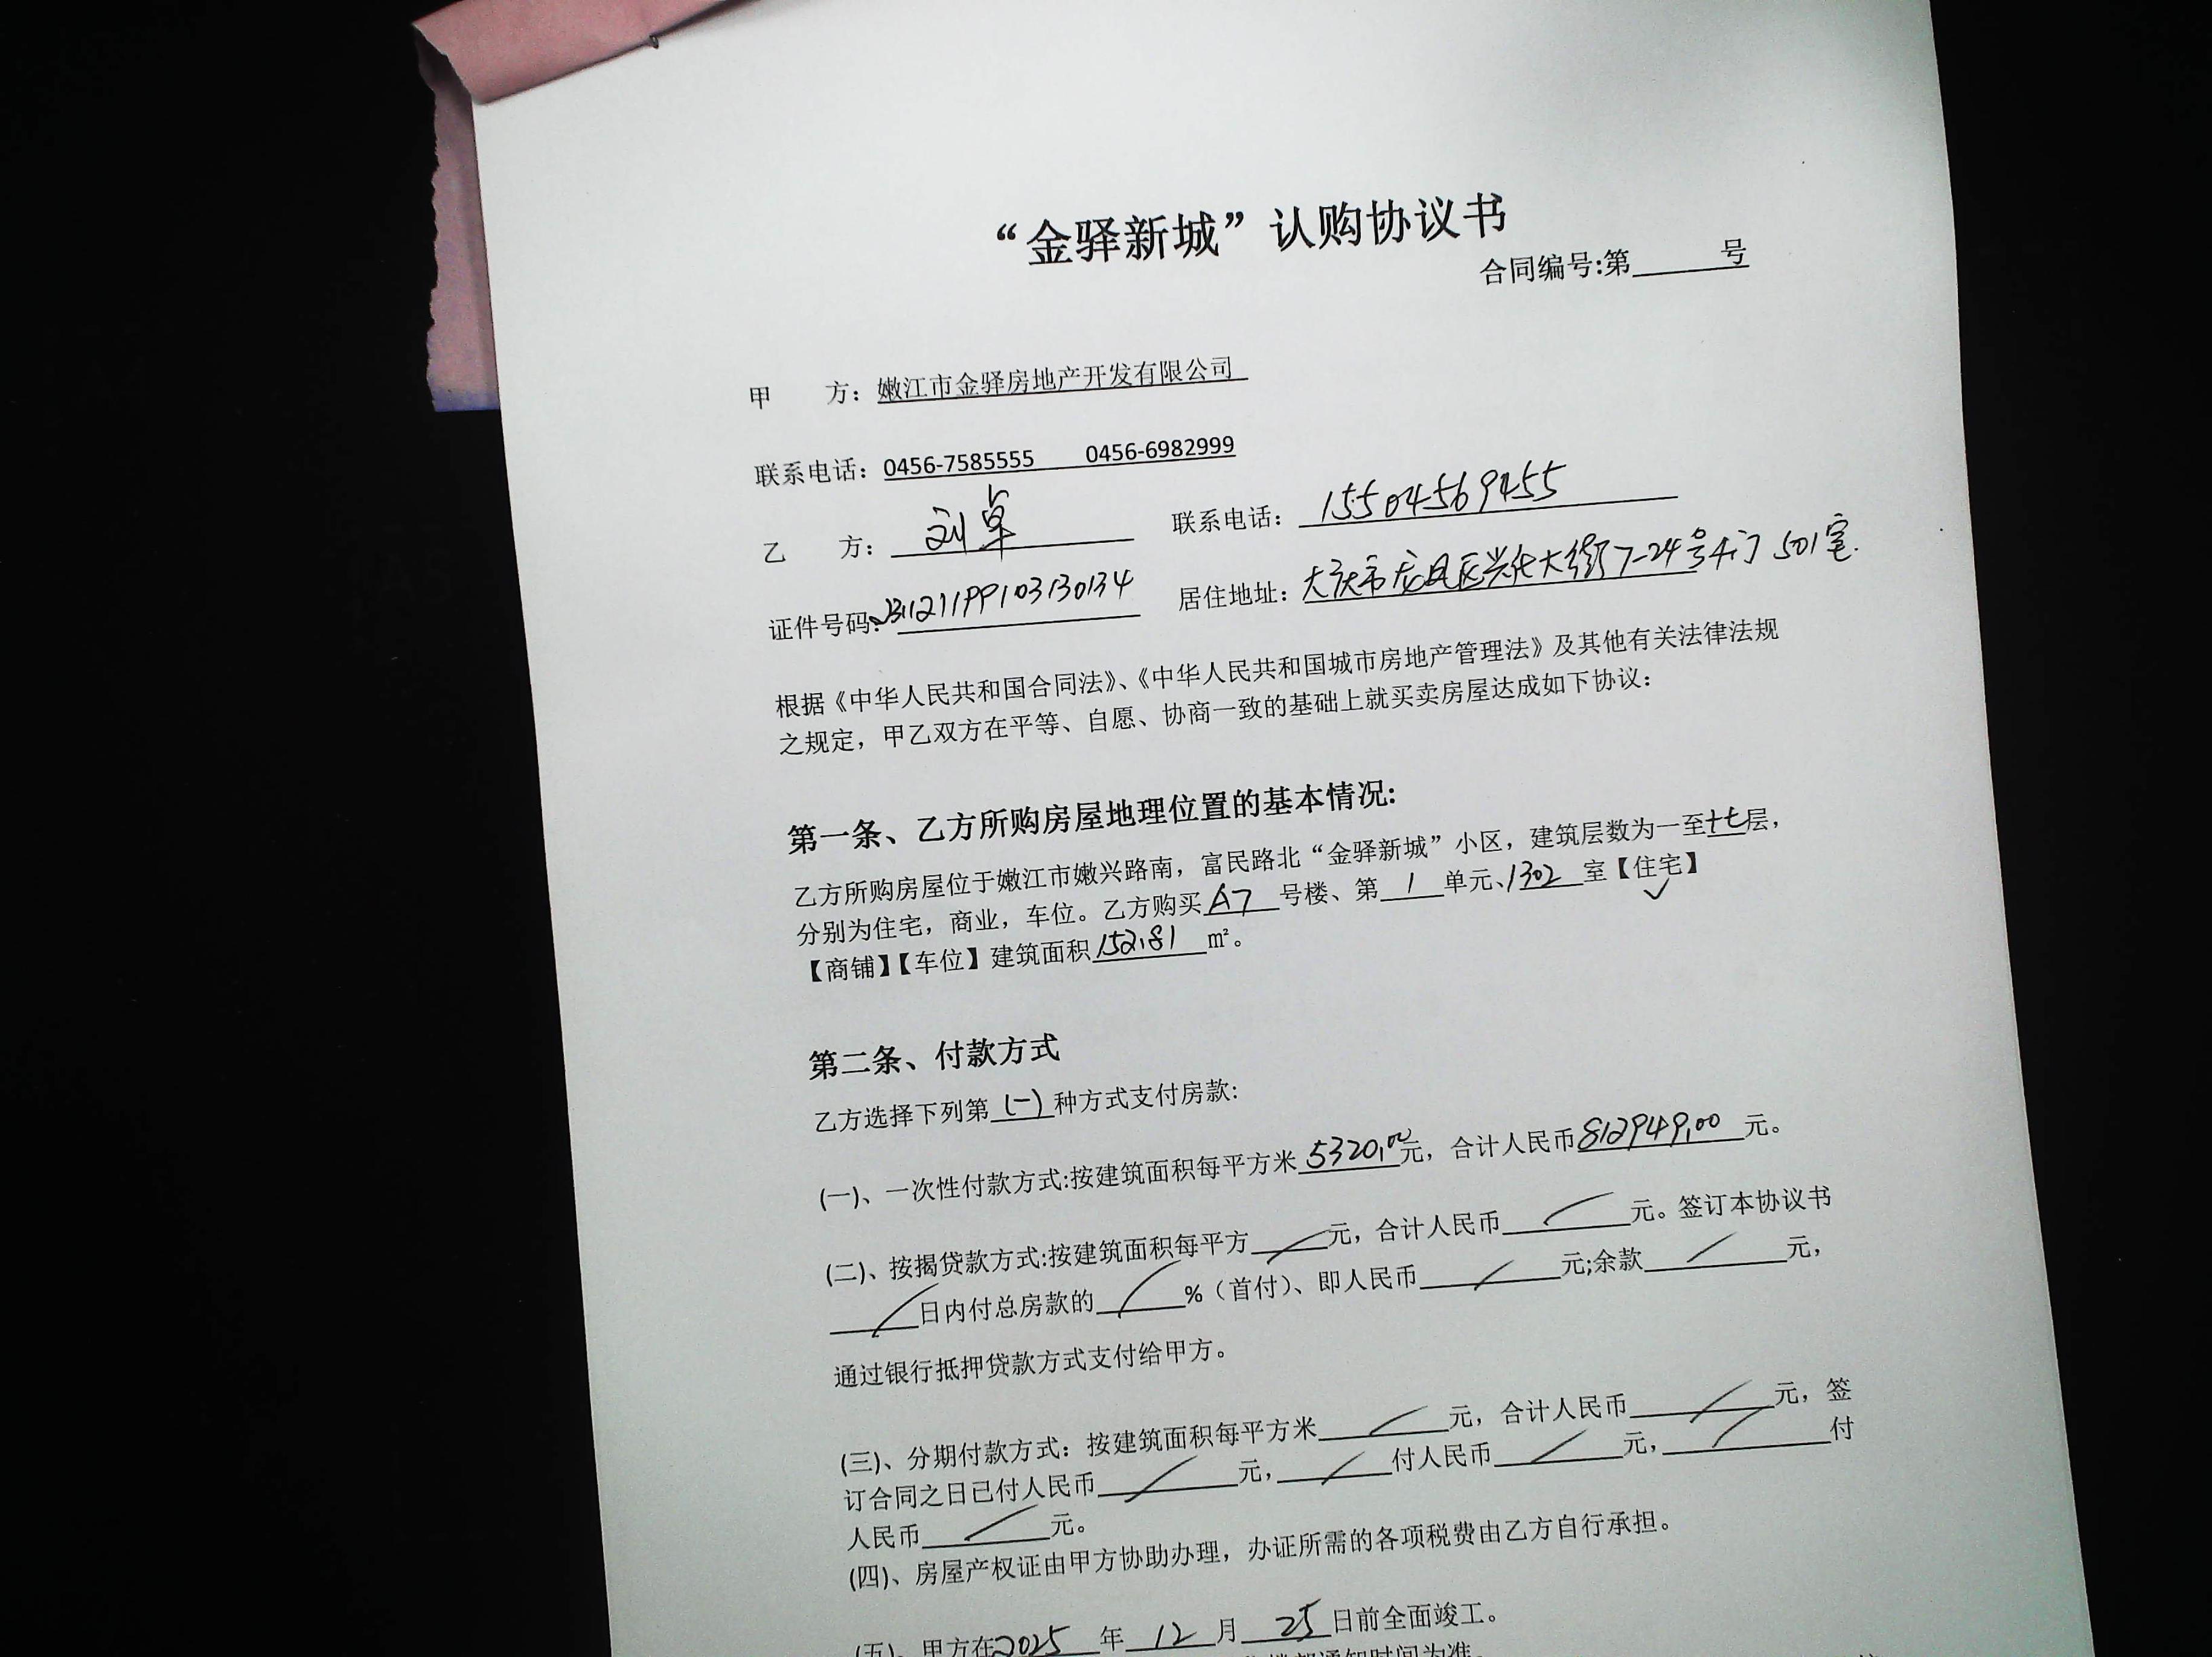 “金驿新城”认购协议书
合同编号:第______号
甲　　方：嫩江市金驿房地产开发有限公司
联系电话：0456-7585555　　0456-6982999
乙　　方：刘卓　联系电话：15504569455
证件号码：231121199103130134　居住地址：大庆市龙凤区兴化大街7-24号4门501室.
根据《中华人民共和国合同法》、《中华人民共和国城市房地产管理法》及其他有关法律法规
之规定，甲乙双方在平等、自愿、协商一致的基础上就买卖房屋达成如下协议：
第一条、乙方所购房屋地理位置的基本情况:
乙方所购房屋位于嫩江市嫩兴路南，富民路北“金驿新城”小区，建筑层数为一至十七层，
分别为住宅，商业，车位。乙方购买A7号楼、第1单元、1302室【住宅】✓
【商铺】【车位】建筑面积152.81㎡。
第二条、付款方式
乙方选择下列第(一)种方式支付房款:
(一)、一次性付款方式:按建筑面积每平方米5320.00元，合计人民币812949.00元。
(二)、按揭贷款方式:按建筑面积每平方／元，合计人民币／元。签订本协议书
／日内付总房款的／%（首付）、即人民币／元;余款／元，
通过银行抵押贷款方式支付给甲方。
(三)、分期付款方式：按建筑面积每平方米／元，合计人民币／元，签
订合同之日已付人民币／元，／付人民币／元，／付
人民币／元。
(四)、房屋产权证由甲方协助办理，办证所需的各项税费由乙方自行承担。
(五)、甲方在2025年12月25日前全面竣工。